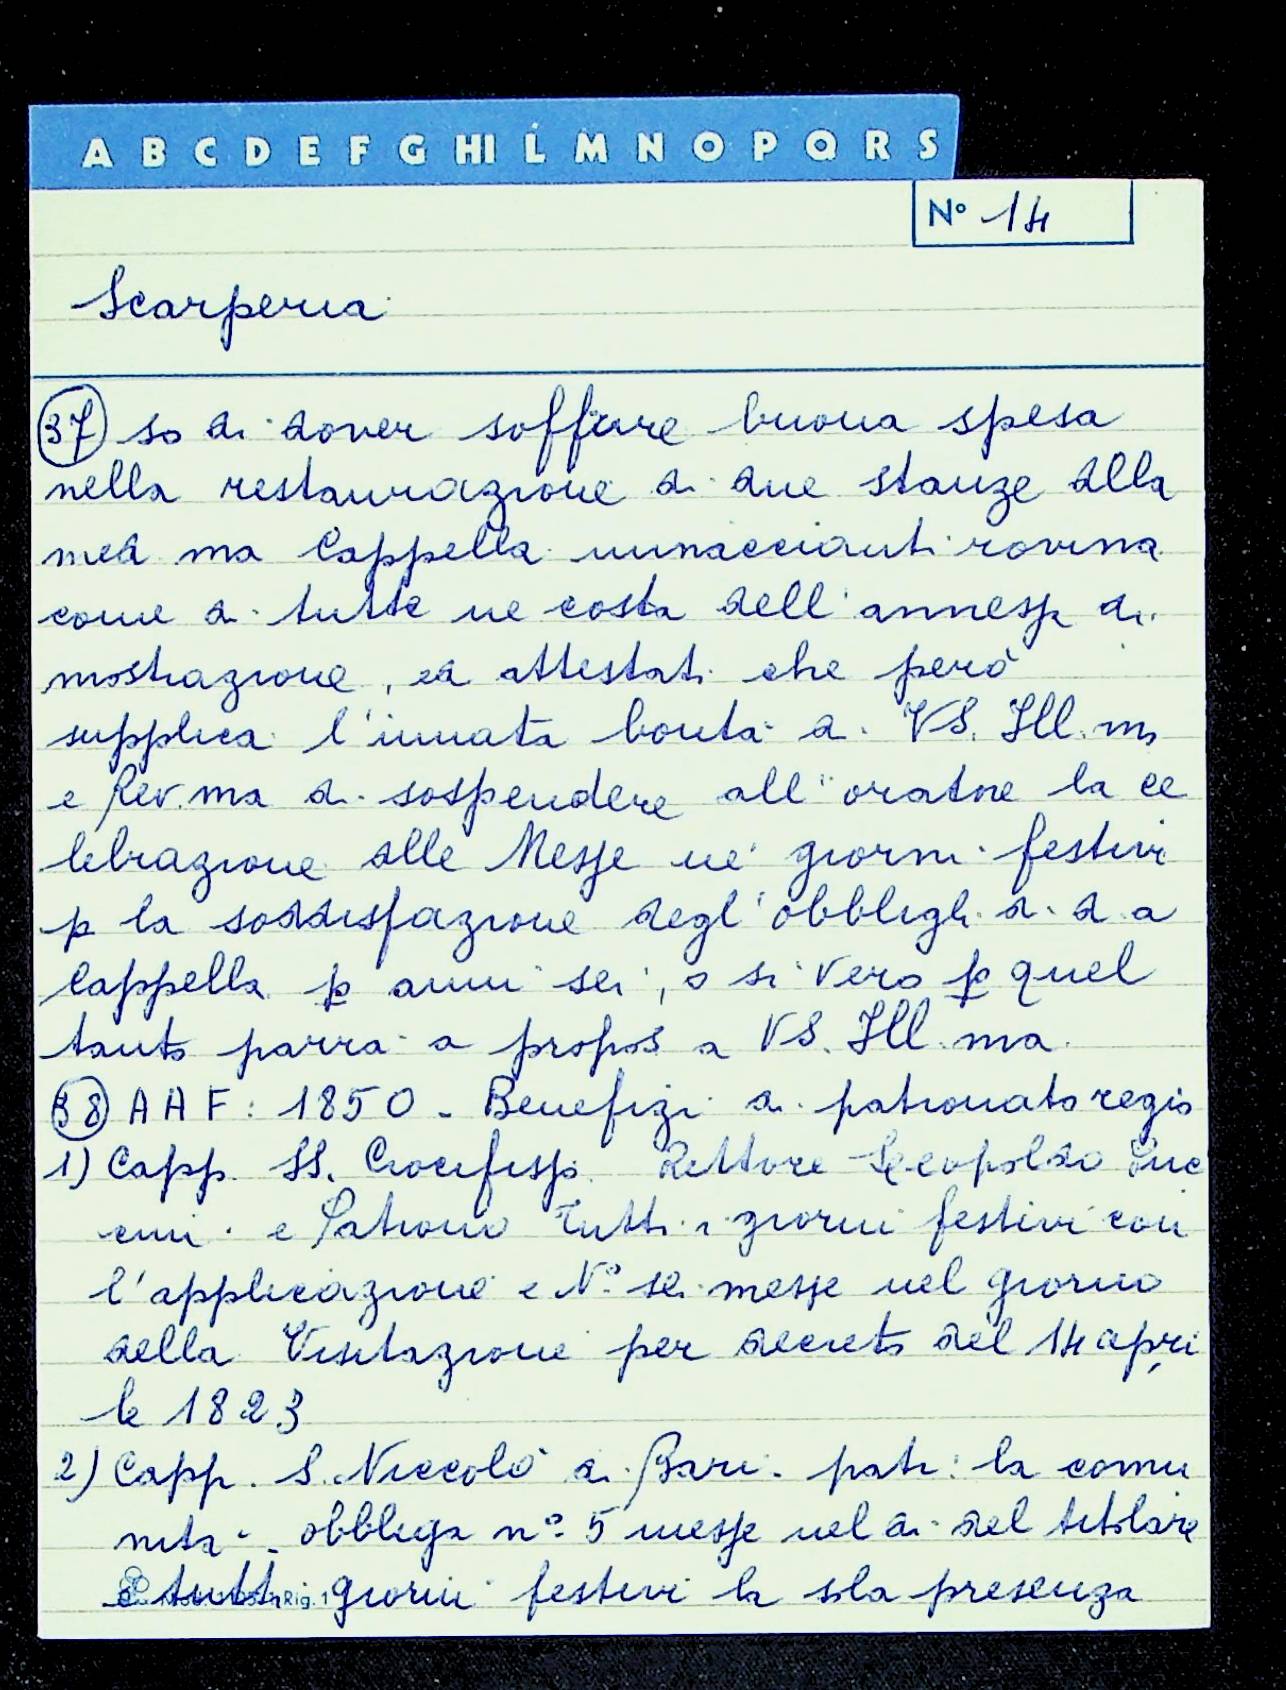 A B C D E F G HI L M N O P Q R S
Nº 14
Scarperia
37 so di dover soffrire buona spesa
nella restaurazione di due stanze della
med ma Cappella minaccianti rovina
come di tutte ne costa dell'annessa di
mostrazione, ed attestati che però
supplica l'innata bontà di VS. Ill.ma
e Rev.ma di sospendere all'oratore la ce
lebrazione delle Messe ne' giorni festivi
p la soddisfazione degl'obblighi di d a
Cappella p anni sei, o si vero p quel
tanto parrà a proposi a VS. Ill.ma.
38 AAF: 1850 - Benefizi di patronato regio
1) Capp. SS. Crocifisso. Rettore Leopoldo
e Patrono Tutti i giorni festivi con
l'applicazione e Nº sei messe nel giorno
della Visitazione per decreto del 14 apri
le 1823
2) Capp. S. Niccolò di Bari. patr: la comu
nità - obbligo nº 5 messe nel dì del titolare
e tutti giorni festivi la sola presenza
Rig. 1